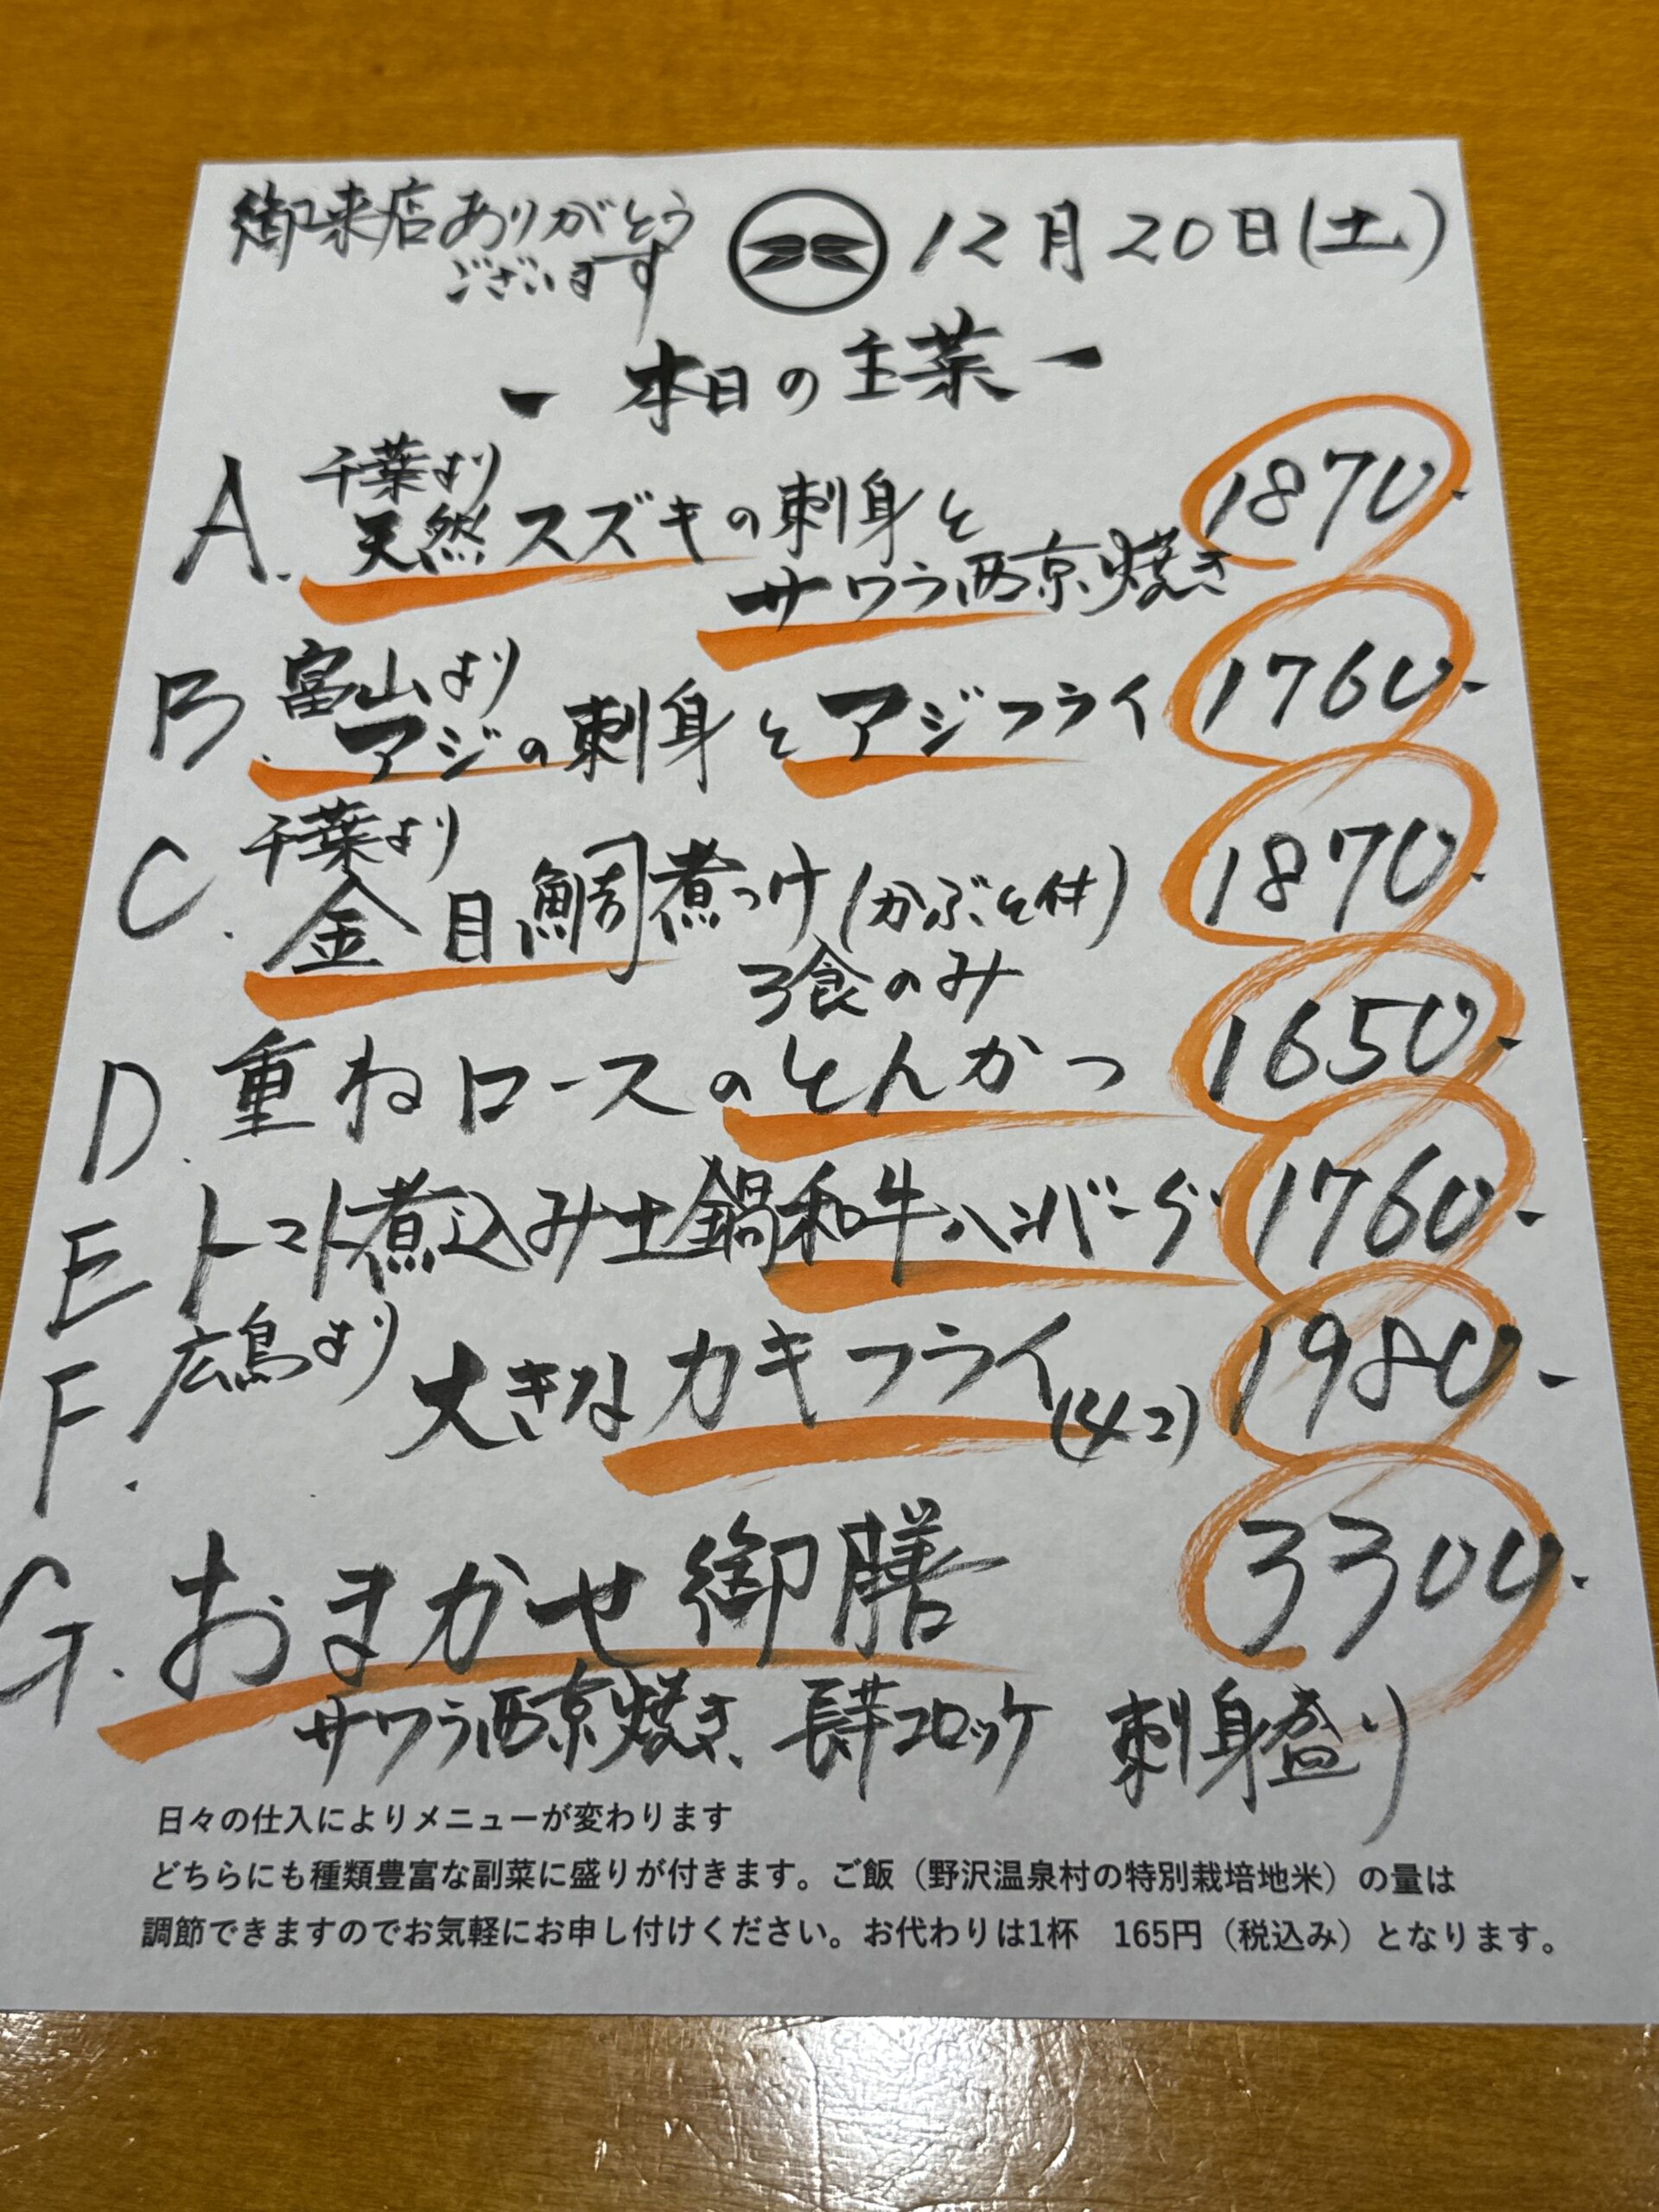 御来店ありがとう
ございます
12月20日(土)
- 本日の主菜 -
A. 千葉より
天然スズキの刺身と
サワラ西京焼き
1870.-
B. 富山より
アジの刺身とアジフライ 1760.-
C. 千葉より
金目鯛煮つけ(かぶと付) 1870.-
3食のみ
D. 重ねロースのとんかつ 1650.-
E トマト煮込み土鍋和牛ハンバーグ 1760.-
F. 広島より
大きなカキフライ(4コ) 1980.-
G. おまかせ御膳 3300.-
サワラ西京焼き、長芋コロッケ 刺身盛り
日々の仕入によりメニューが変わります
どちらにも種類豊富な副菜に盛りが付きます。ご飯（野沢温泉村の特別栽培地米）の量は
調節できますのでお気軽にお申し付けください。お代わりは1杯 165円（税込み）となります。